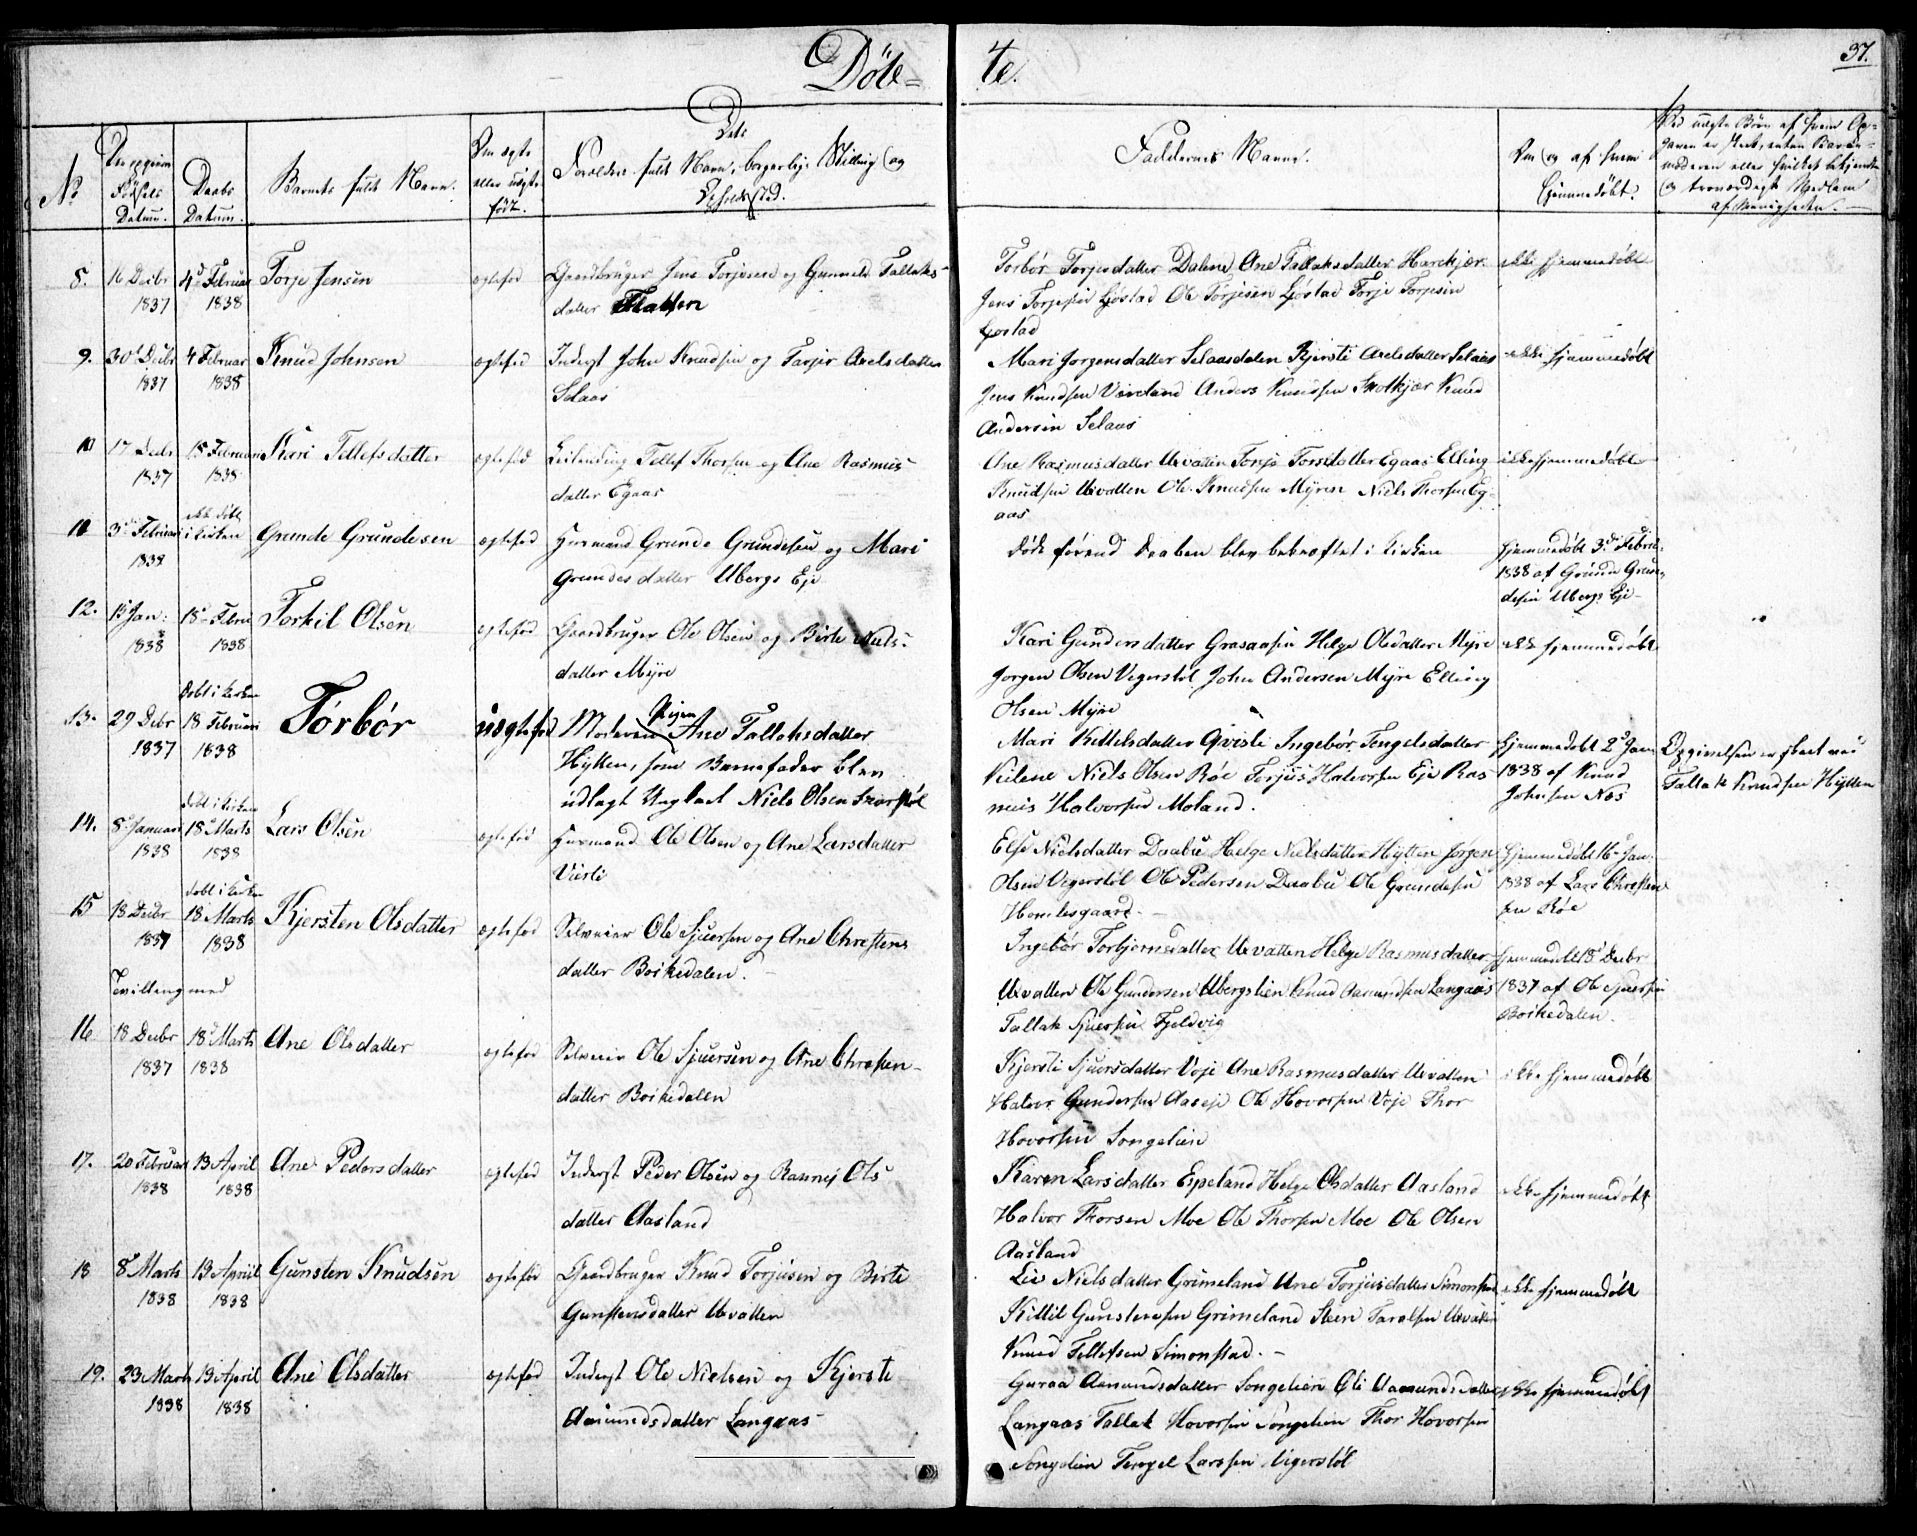 Döb=
te.
37.
No
Den opgivne Fødsels Datum.
Daabs Datum.
Barnets fulde Navn.
Om ægte eller uægte født.
Dets
Forældres fulde Navn, borgerlige Stilling og
Opholdssted.
Faddernes Navne.
Om og af hvem
hjemmedøbt.
8. 16 Decbr 1837
4de Februar 1838
Torje Jensen
ægtefød
Gaardbruger Jens Torjesen og Gunneld Tallaks-
datter Flatten
Torbór Torjesdatter Dalene Ane Tallaksdatter Harekjær
Jens Torjesen Gjöstad Ole Torjesen Gjöstad Torje Torjesen
Gjöstad
ikke hjemmedøbt
9. 30 Decbr 1837
4 Februar 1838
Knud Johnsen
ægtefød
Inderst John Knudsen og Tarjer Axelsdatter
Selaas
Mari Jorgensdatter Selaasdalen Kjersti Axelsdatter Selaas
Jens Knudsen Vœreland Anders Knudsen Skotkjær Knud
Andersen Selaas
ikke hjemmedøbt
10 17 Decbr 1837
18 Februar 1838
Kari Tellefsdatter
ægtefød
Leilending Tellef Thorsen og Ane Rasmus-
datter Egaas
Ane Rasmusdatter Uevatten Torjo Torsdatter Egaas Elling
Knudsen Uevatten Ole Knudsen Myren Niels Thorsen Eg-
aas
ikke hjemmedøbt
11 3de Februar 1838
ikke døbt i Kirken
Grunde Grundesen
ægtefød
Huusmand Grunde Grundesen og Mari
Grundesdatter Ubergs Eje
døde førend Daaben blev bekræftet i Kirken
hjemmedøbt 3de Februar
1838 af Grunde Grun-
desen Ubergs Eje
12. 15 Jan: 1838
18 Febru 1838
Torkil Olsen
ægtefød
Gaardbruger Ole Olsen og Birte Niels-
datter Myre
Kari Gundersdatter Grasaasen Helge Olsdatter Myre
Jorgen Olsen Vegerstøl John Andersen Myre Elling
Olsen Myre
ikke hjemmedøbt
13. 29 Decbr 1837
Døbt i Kirken
18 Februar 1838
Torbór
uægtefød
Moderen Pigen Ane Tallaksdatter
Hytten, som Barnefader blev
udlagt Ungkarl Niels Olsen
Mari Kittelsdatter Qvisti Ingebór Tengelsdatter
Veilene Niels Olsen Röe Torjuis Halvorsen Eje Ras
mus Halvorsen Moland.
hjemmedøbt 2 Jan
1838 af Knud
Johnsen Næs
Opgivelsen er skeet ved
Tallak Knudsen Hytten
14. 8 Januar 1838
døbt i Kirken
18 Marts 1838
Lars Olsen
ægtefød
Huusmand Ole Olsen og Ane Larsdatter
Vierli
Else Nielsdatter Daabu Helge Nielsdatter Hytten Jorgen
Olsen Vegerstöl Ole Pedersen Daabu Ole Grundesen
Homlesgaard.
hjemmedøbt 16 Jan:
1838 af Lars Christen
sen Röe
15 18 Decbr 1837
døbt i Kirken
18 Marts 1838
Kjersten Olsdatter
ægtefød
Selveier Ole Sjuersen og Ane Christens
datter Boikedalen.
Ingebór Torbjornsdatter Uevatten Helge Rasmusdatter
Uevatten Ole Gundersen Ubergslien Knud Aamundsen Langaas
Tallak Sjuersen Fjeldvig
hjemmedøbt 18 Decbr
1837 af Ole Sjuersen
Boikedalen.
Tvilling med
16 18 Decbr 1837
18 Marts 1838
Ane Olsdatter
ægtefød
Selveier Ole Sjuersen og Ane Christen-
datter Boikedalen
Kjersti Sjuersdatter Voje Ane Rasmusdatter Uevatten
Halvor Gundersen Aaseje Ole Hovorsen Voje Thor
Hovorsen Songelien
ikke hjemmedøbt
17. 20 Februar 1838
13 April 1838
Ane Pedersdatter
ægtefød
Inderst Peder Olsen og Rannej Ols
datter Aasland
Karen Larsdatter Espeland Helge Olsdatter Aasland
Halvor Thorsen Moe Ole Thorsen Moe Ole Olsen
Aasland
ikke hjemmedøbt
18 8 Marts 1838
13 April 1838
Gunsten Knudsen
ægtefød
Gaardbruger Knud Torjusen og Birte
Gunstensdatter Uevatten
Liv Nielsdatter Grimeland Ane Torjusdatter Simonstad
Kittil Gunstensen Grimeland Steen Taralsen Uevatten
Knud Tellefsen Simonstad.
ikke hjemmedøbt
19. 23 Marts 1838
13 April 1838
Ane Olsdatter
ægtefød
Inderst Ole Nielsen og Kjersti
Aamundsdatter Langaas
Guraa Aamundsdatter Songelien Oli Aamundsdatter
Langaas Tallak Hovorsen Songelien Thor Hovorsen
Songelien Tengel Larssen Vegerstøl
ikke hjemmedøbt